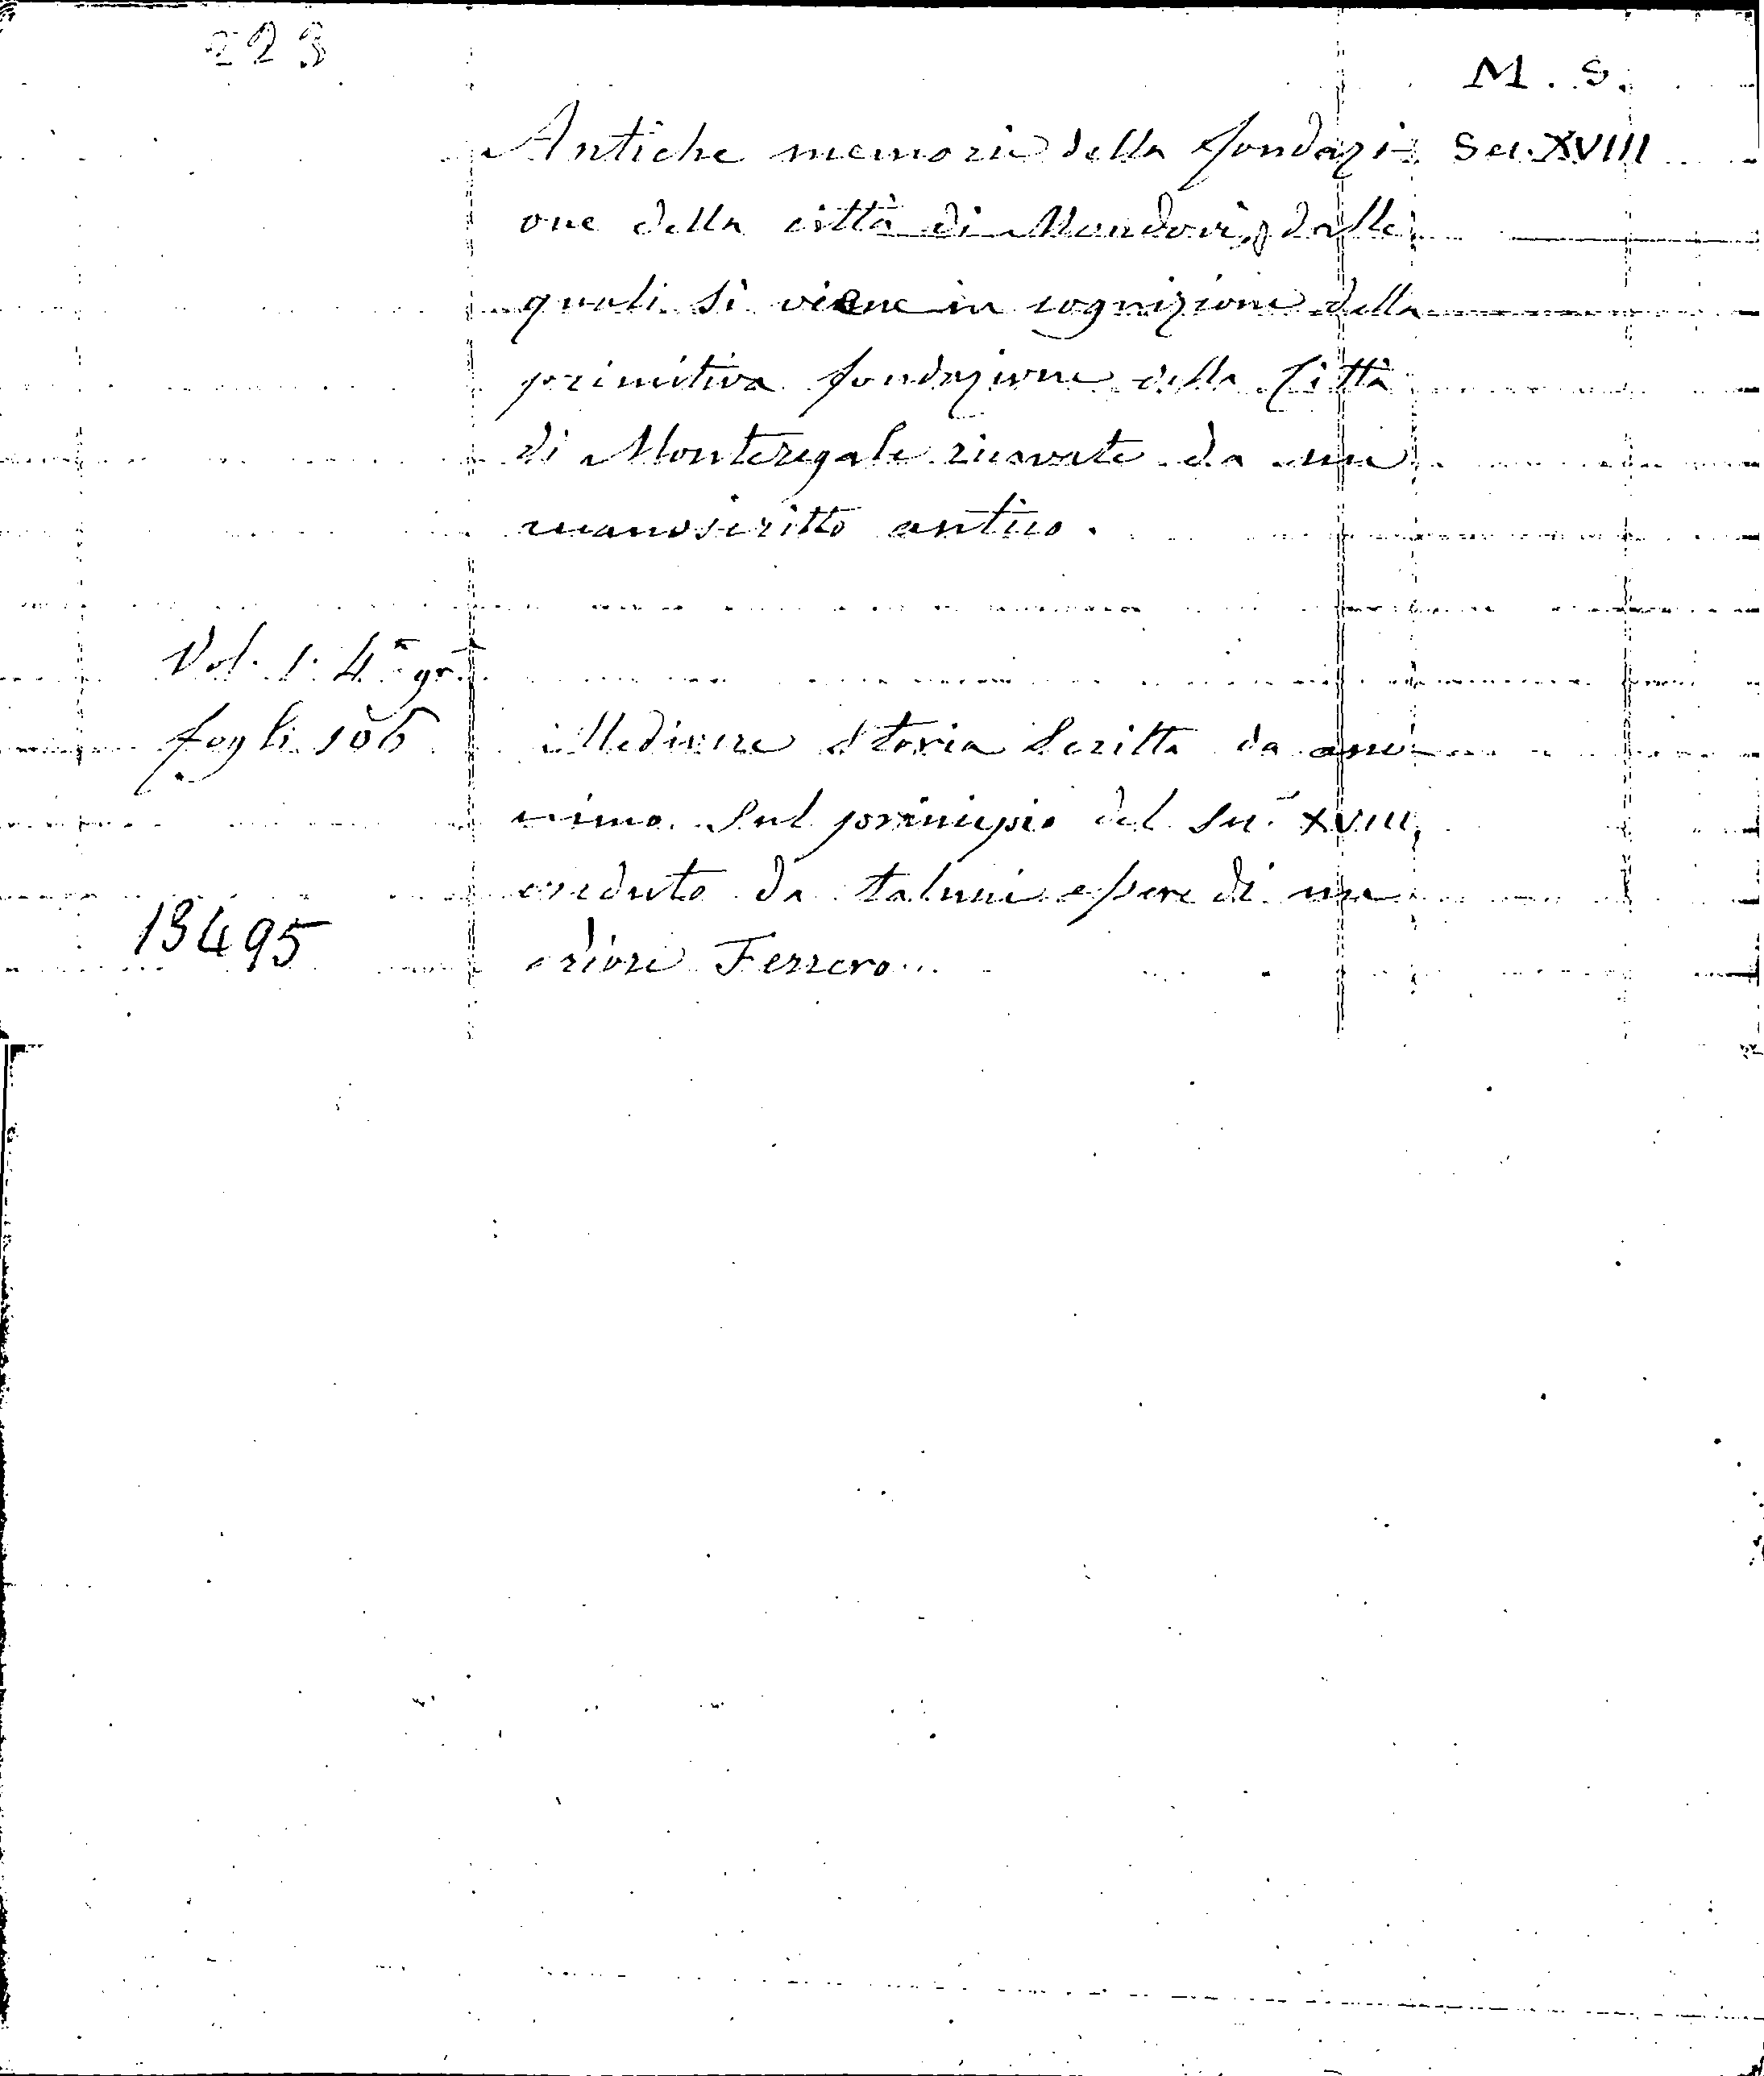 223
M. S.
Antiche memorie della fondazi- Sec. XVIII
one della città di Mondovì, dalle
quali si viene in cognizione della
primitiva fondazione della Città
di Monteregale ricavate da un
manoscritto antico.
Vol. 1. 4° gr.
fogli 106 Mediocre Storia Scritta da ano
nimo Sul principio del Sec. XVIII,
creduto da taluni essere di un
Priore Ferrero...
13495